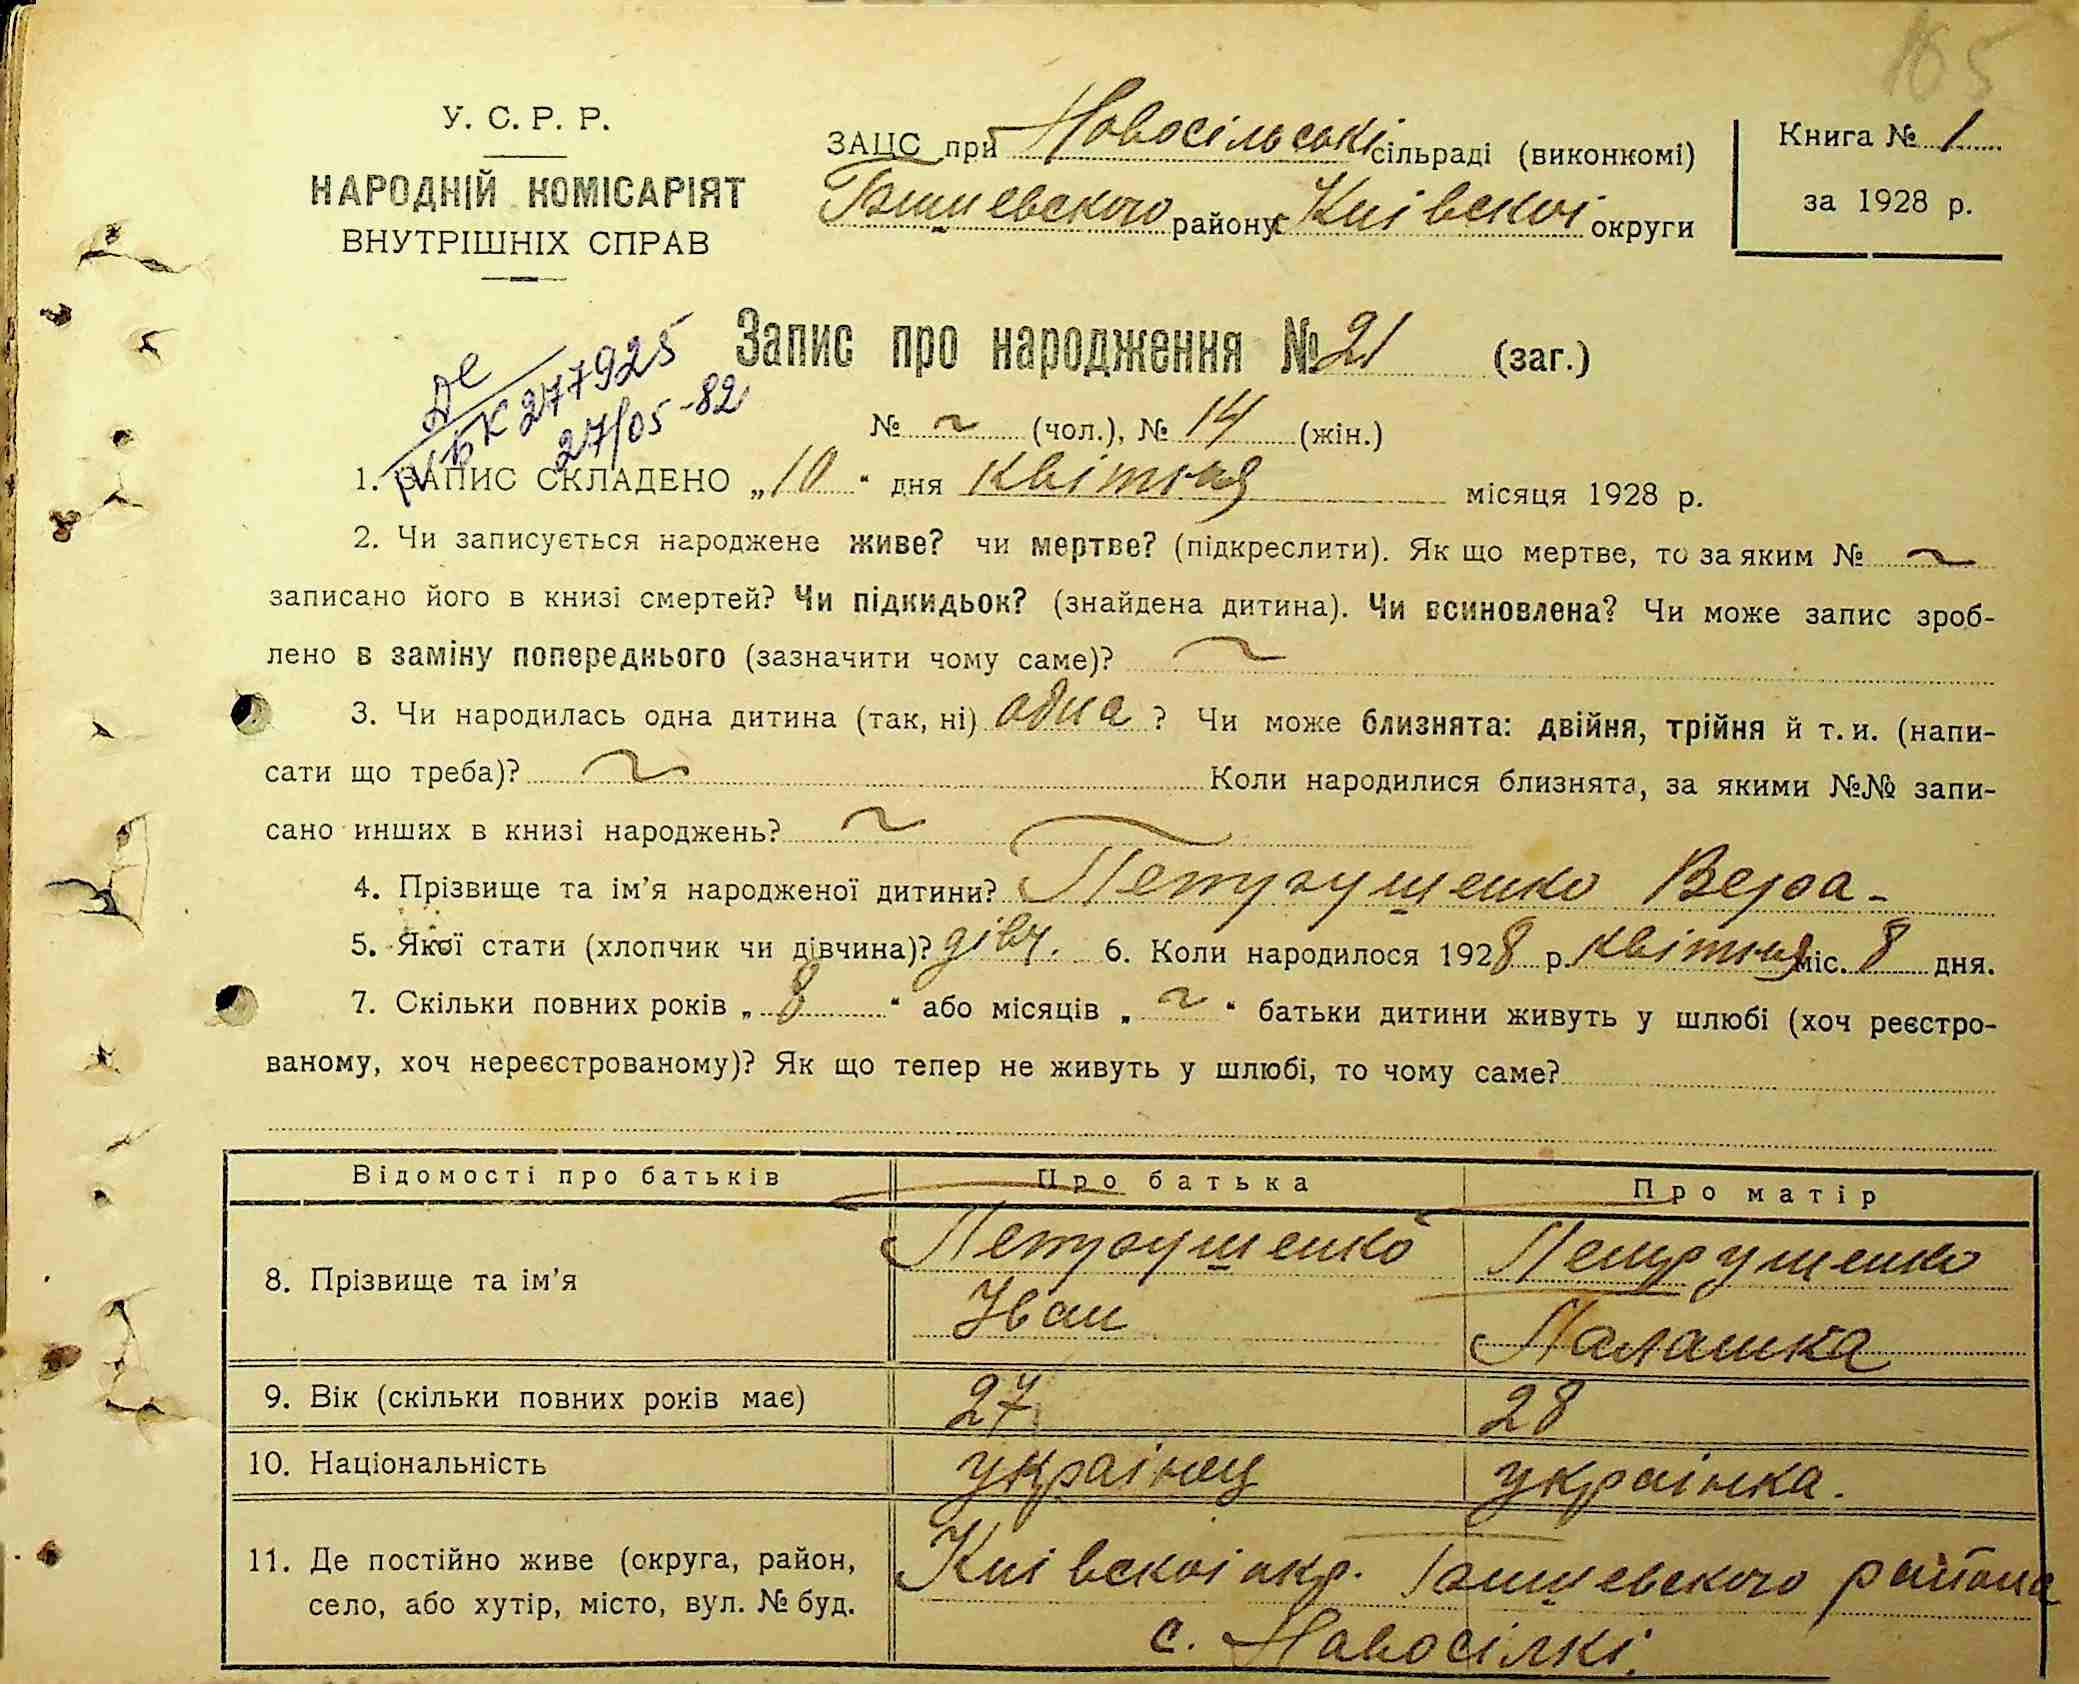 165
У. С. Р. Р.
НАРОДНІЙ КОМІСАРІЯТ
ВНУТРІШНІХ СПРАВ
ЗАЦС при Новосільські сільраді (виконкомі)
Бишевського району Київскоі округи
Книга № 1
за 1928 р.
Запис про народження № 21 (заг.)
ІV БК 277925
27/05-82
№ ~ (чол.), № 14 (жін.)
1. ЗАПИС СКЛАДЕНО „10“ дня квітня місяця 1928 р.
2. Чи записується народжене живе? чи мертве? (підкреслити). Як що мертве, то за яким № ~
записано його в книзі смертей? Чи підкидьок? (знайдена дитина). Чи всиновлена? Чи може запис зроб-
лено в заміну попереднього (зазначити чому саме)? ~
3. Чи народилась одна дитина (так, ні) одна ? Чи може близнята: двійня, трійня й т. и. (напи-
сати що треба)? ~ Коли народилися близнята, за якими №№ запи-
сано инших в книзі народжень? ~
4. Прізвище та ім’я народженої дитини? Петрушенко Вера -
5. Якої стати (хлопчик чи дівчина)? дівч. 6. Коли народилося 1928 р. квітня міс. 8 дня.
7. Скільки повних років „8“ або місяців „~“ батьки дитини живуть у шлюбі (хоч реєстро-
ваному, хоч нереєстрованому)? Як що тепер не живуть у шлюбі, то чому саме?
Відомості про батьків Про батька Про матір
8. Прізвище та ім’я Петрушенко Іван Петрушенко Палашка
9. Вік (скільки повних років має) 27 28
10. Національність украінец украінка.
11. Де постійно живе (округа, район, Киівскоі окр. Бишевского района
село, або хутір, місто, вул. № буд. с. Новосілкі.